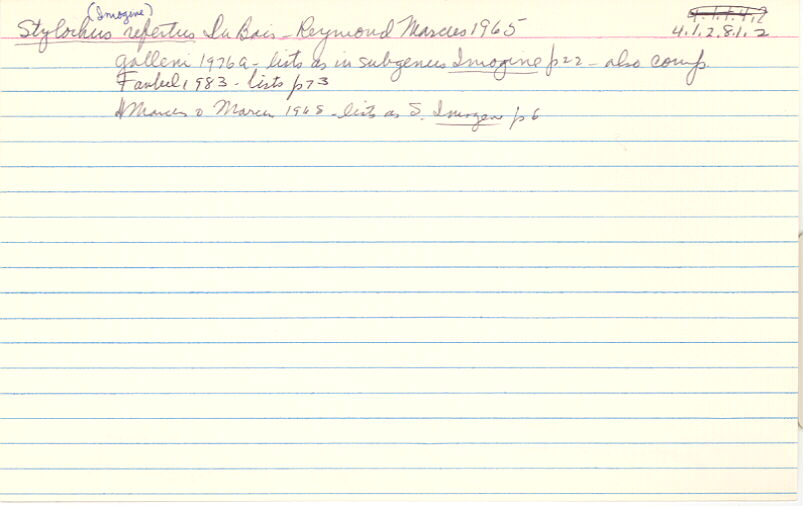 (Imogine)
Stylochus refertus Du Bois-Reymond Marcus 1965
4.1.1.4.2
4.1.2.8.1.2
Galleni 1976a - lists as in subgenus Imogine p22 - also comp.
Faubel 1983 - lists p73
Marcus & Marcus 1968 - lists as S. Imogene p6